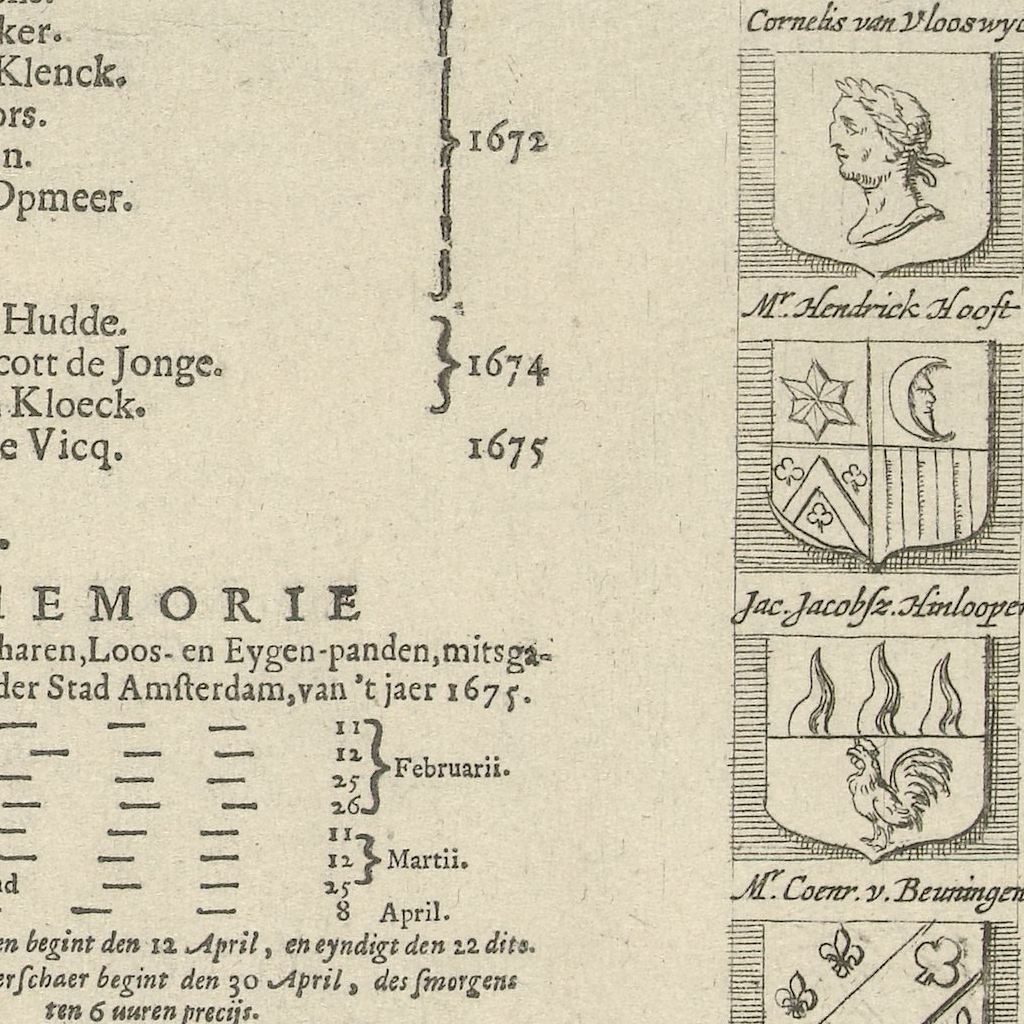 ker.
Klenck.
ors.
n.
Opmeer.
1672
Hudde.
cott de Jonge.
Kloeck.
1674
e Vicq. 1675
EMORIE
haren, Loos- en Eygen-panden, mitsga-
der Stad Amſterdam, van 't jaer 1675.
11
12
25
26
Februarii.
11
12
25
Martii.
8 April.
en begint den 12 April, en eyndigt den 22 dito.
erſchaer begint den 30 April, des ſmorgens
ten 6 uuren precijs.
Cornelis van Vlooswyc
Mr. Hendrick Hooft
Jac. Jacobſz. Hinlopen
Mr. Coenr. v. Beuningen